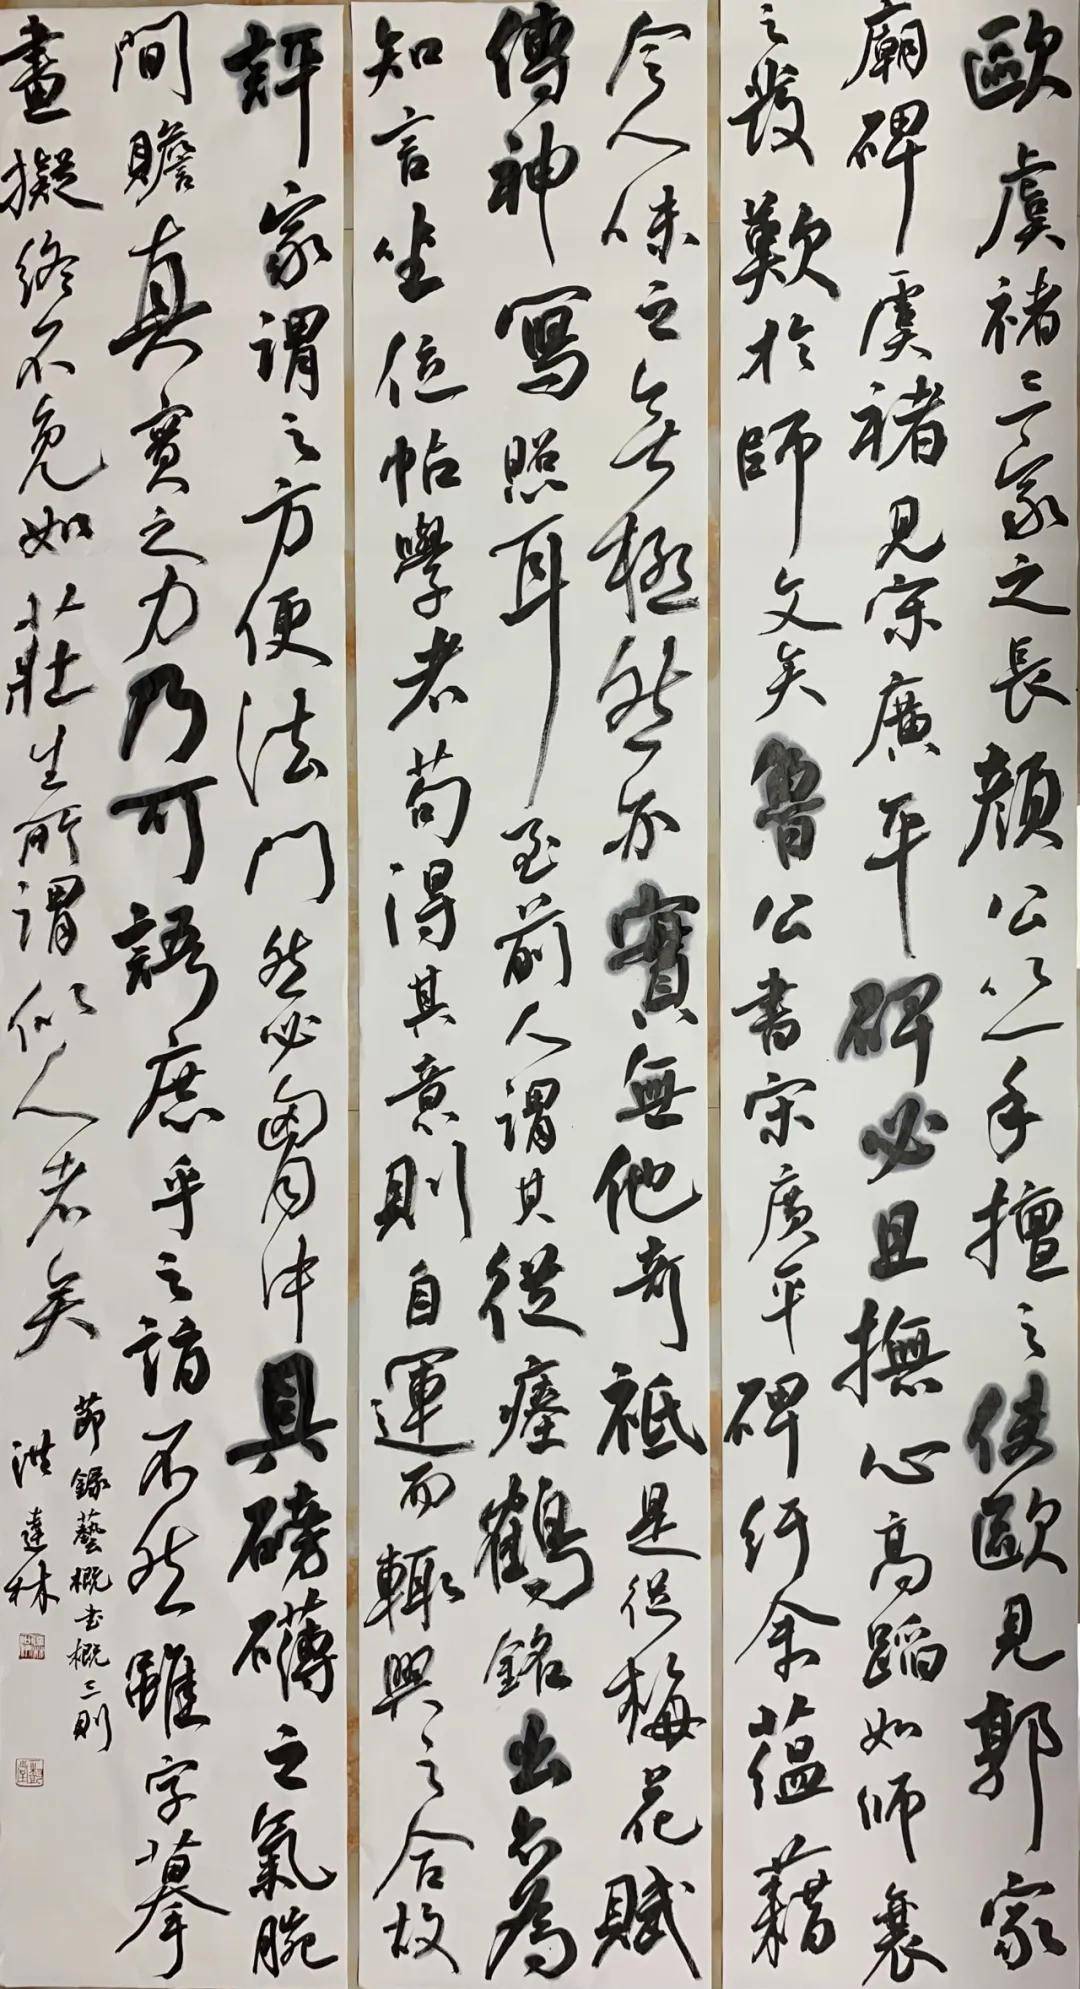 歐虞褚三家之長顏公以一手擅之使歐見郭家
廟碑虞褚見宋廣平碑必且撫心高蹈如師襄
之發歎於師文矣魯公書宋廣平碑紆余蘊藉
令人味之無極然亦實無他奇祗是從梅花賦
傳神寫照耳至前人謂其從瘞鶴銘出亦為
知言坐位帖學者苟得其意則自運而輒與之合故
評家謂之方便法門然必胸中具磅礴之氣腕
間贍真實之力乃可語庶乎之詣不然雖字摹
畫擬終不免如莊生所謂似人者矣
節錄藝概書概三則
洪達林